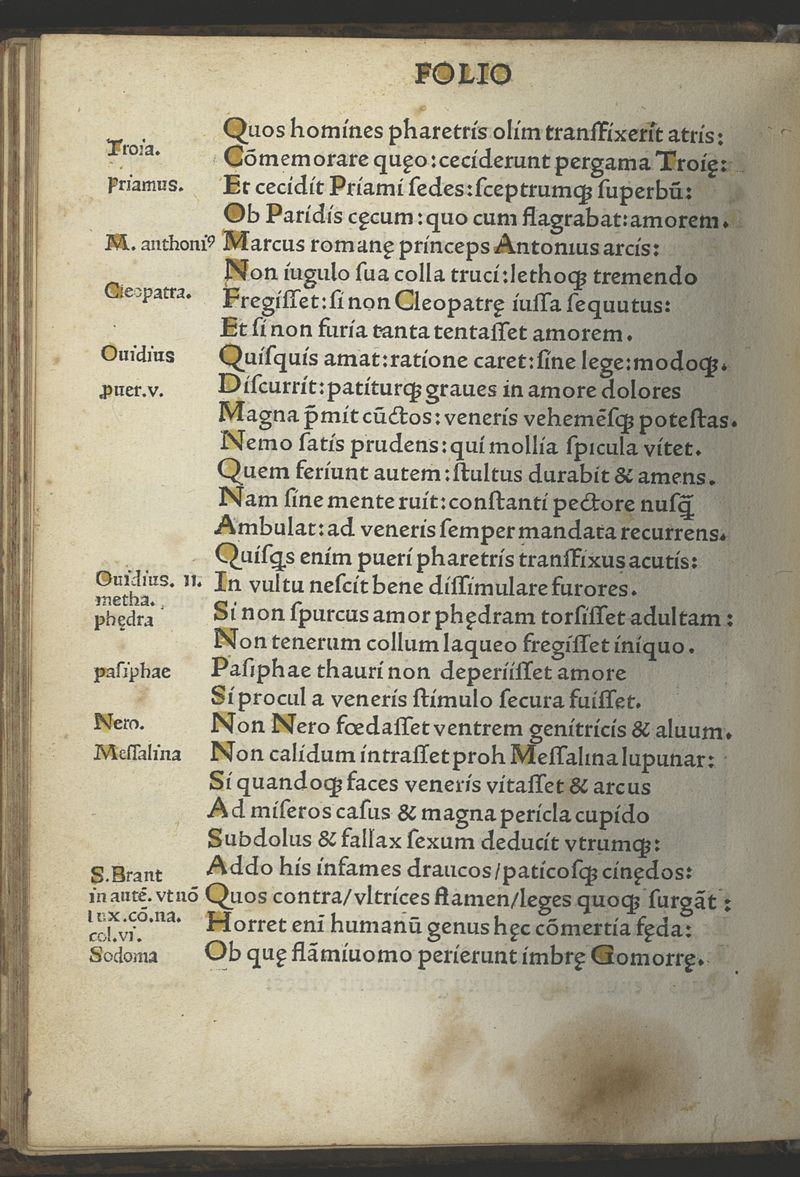 FOLIO
Quos homines pharetris olim tranſfixerit atris:
Troia.
Cōmemorare quęo: ceciderunt pergama Troię:
Priamus.
Et cecidit Priami ſedes: ſceptrumqꝫ ſuperbū:
Ob Paridis cęcum: quo cum flagrabat: amorem.
M. anthoniꝰ
Marcus romanę princeps Antonius arcis:
Non iugulo ſua colla truci: lethoqꝫ tremendo
Cleopatra.
Fregiſſet: ſi non Cleopatrę iuſſa ſequutus:
Et ſi non furia tanta tentaſſet amorem.
Ouidius
Quiſquis amat: ratione caret: ſine lege: modoqꝫ.
ꝓuer.v.
Diſcurrit: patiturqꝫ graues in amore dolores
Magna p̄mit cūctos: veneris vehemēſqꝫ poteſtas.
Nemo ſatis prudens: qui mollia ſpicula vitet.
Quem feriunt autem: ſtultus durabit & amens.
Nam ſine mente ruit: conſtanti pectore nuſq̄
Ambulat: ad veneris ſemper mandata recurrens.
Quiſqs enim pueri pharetris tranſfixus acutis:
Ouidius. 11.
In vultu neſcit bene diſſimulare furores.
metha.
phędra
Si non ſpurcus amor phędram torſiſſet adultam:
Non tenerum collum laqueo fregiſſet iniquo.
paſiphae
Paſiphae thauri non deperiiſſet amore
Si procul a veneris ſtimulo ſecura fuiſſet.
Nero.
Non Nero fœdaſſet ventrem genitricis & aluum.
Meſſalina
Non calidum intraſſet proh Meſſalina lupunar:
Si quandoqꝫ faces veneris vitaſſet & arcus
Ad miſeros caſus & magna pericla cupido
Subdolus & fallax ſexum deducit vtrumqꝫ:
S.Brant
Addo his infames draucos/paticoſqꝫ cinędos:
in autē. vt nō
Quos contra/vltrices flamen/leges quoqꝫ ſurgāt:
lux.cō.na.
col.vi.
Horret eni humanū genus hęc cōmertia fęda:
Sodoma
Ob quę flāmiuomo perierunt imbrę Gomorrę.